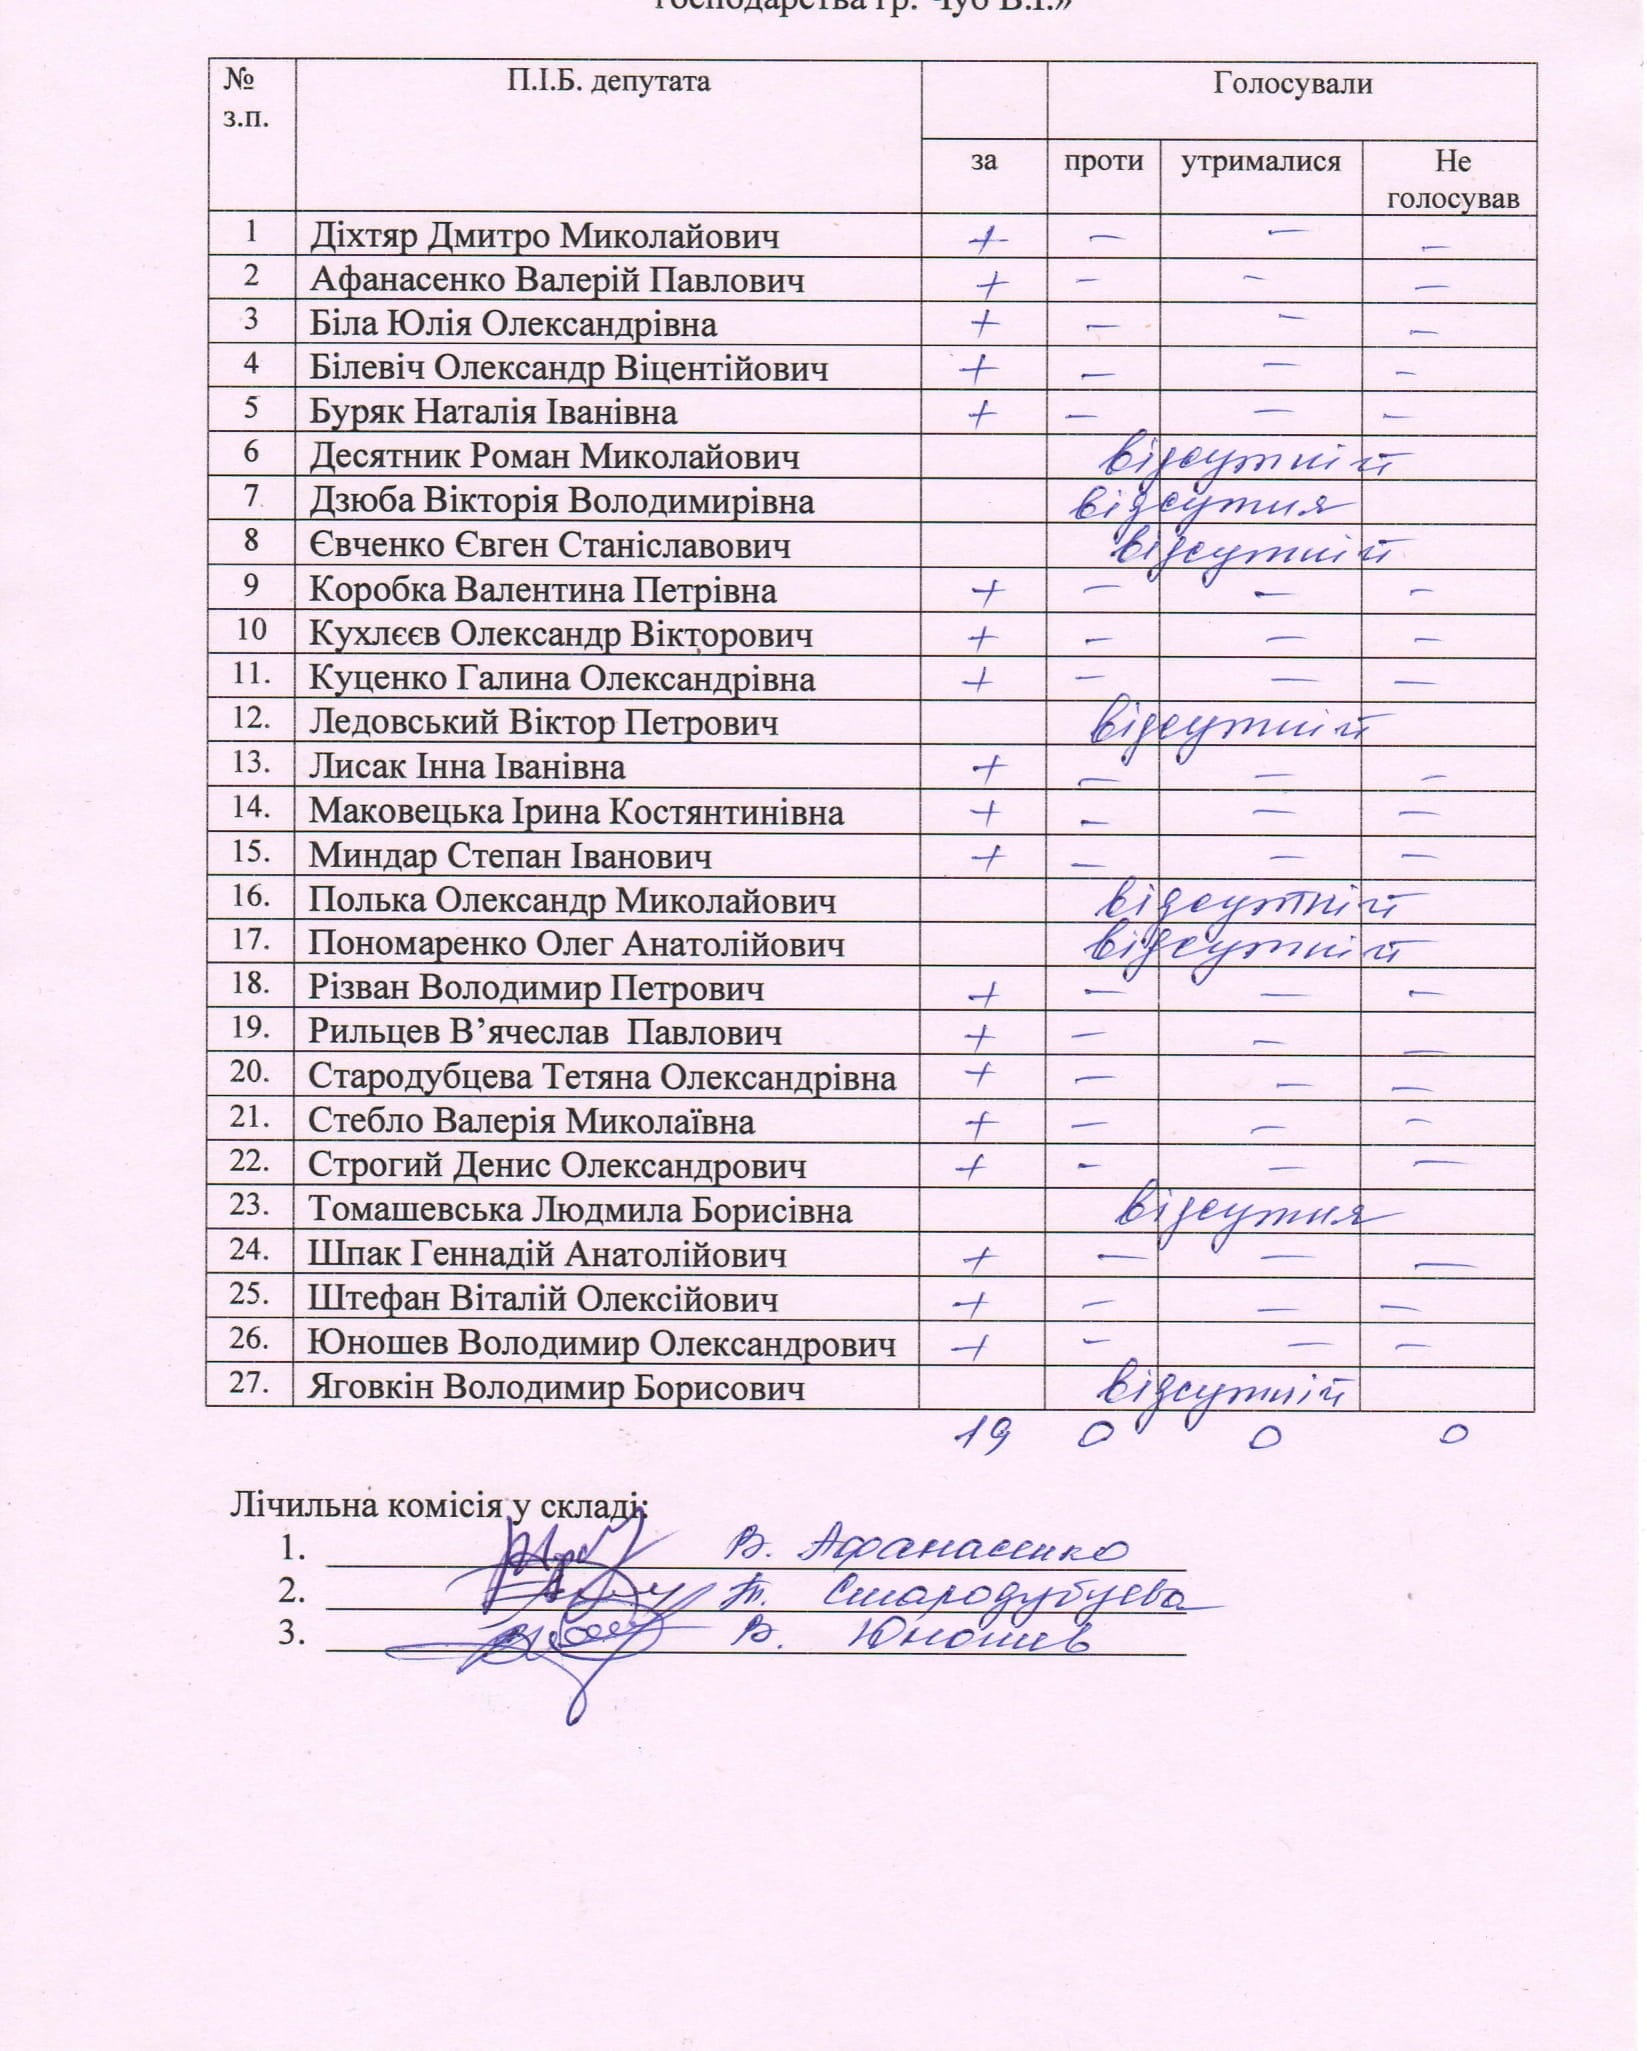 господарства гр. Чуб В.І.»
№ з.п. П.І.Б. депутата Голосували
за проти утрималися Не голосував
1 Діхтяр Дмитро Миколайович + – – –
2 Афанасенко Валерій Павлович + – – –
3 Біла Юлія Олександрівна + – – –
4 Білевіч Олександр Віцентійович + – – –
5 Буряк Наталія Іванівна + – – –
6 Десятник Роман Миколайович відсутній
7. Дзюба Вікторія Володимирівна відсутня
8 Євченко Євген Станіславович відсутній
9 Коробка Валентина Петрівна + – – –
10 Кухлєєв Олександр Вікторович + – – –
11. Куценко Галина Олександрівна + – – –
12. Ледовський Віктор Петрович відсутній
13. Лисак Інна Іванівна + – – –
14. Маковецька Ірина Костянтинівна + – – –
15. Миндар Степан Іванович + – – –
16. Полька Олександр Миколайович відсутній
17. Пономаренко Олег Анатолійович відсутній
18. Різван Володимир Петрович + – – –
19. Рильцев В’ячеслав Павлович + – – –
20. Стародубцева Тетяна Олександрівна + – – –
21. Стебло Валерія Миколаївна + – – –
22. Строгий Денис Олександрович + – – –
23. Томашевська Людмила Борисівна відсутня
24. Шпак Геннадій Анатолійович + – – –
25. Штефан Віталій Олексійович + – – –
26. Юношев Володимир Олександрович + – – –
27. Яговкін Володимир Борисович відсутній
19 0 0 0
Лічильна комісія у складі:
1. В. Афанасенко
2. Т. Стародубцева
3. В. Юношев